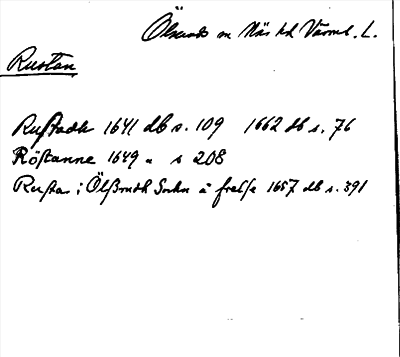 Ölserud sn Näs hd Värml. L.
Rustan
Rustadh 1641 db s. 109 1662 db s. 76
Röstanne 1649 " s 208
Rustan i Ölßrudh Sochn å frelse 1657 db s. 391